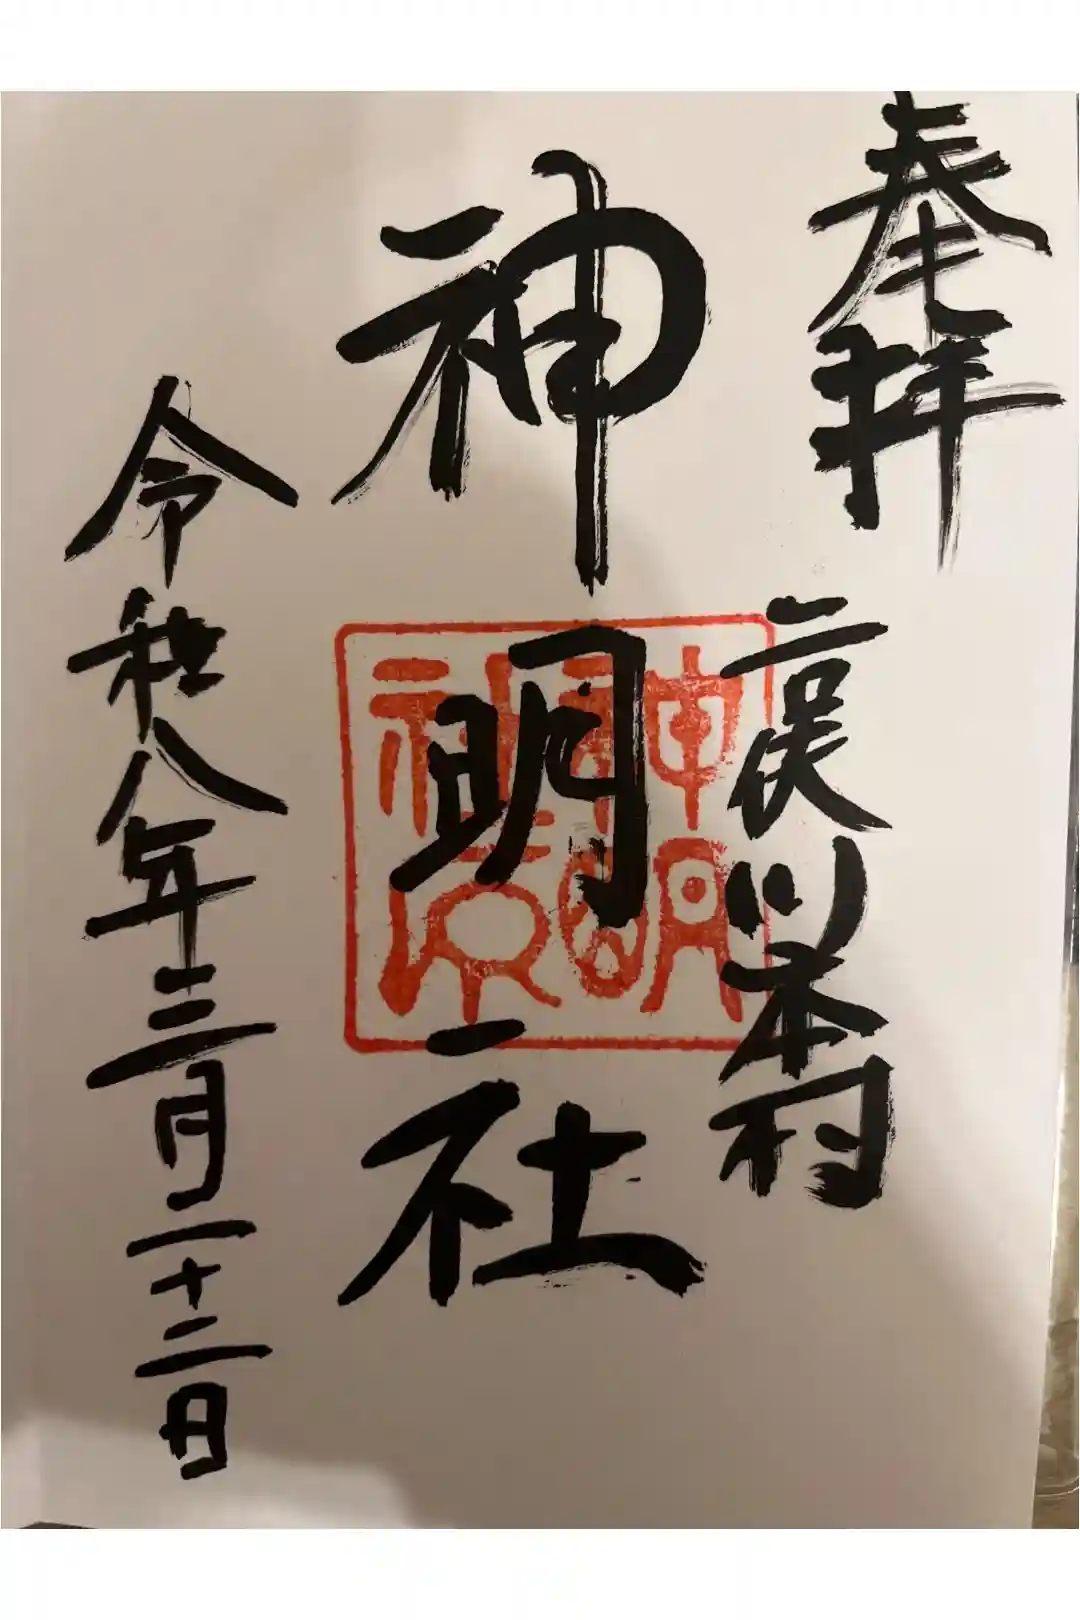 奉拝
二俣川本村
神明社
令和八年三月二十二日